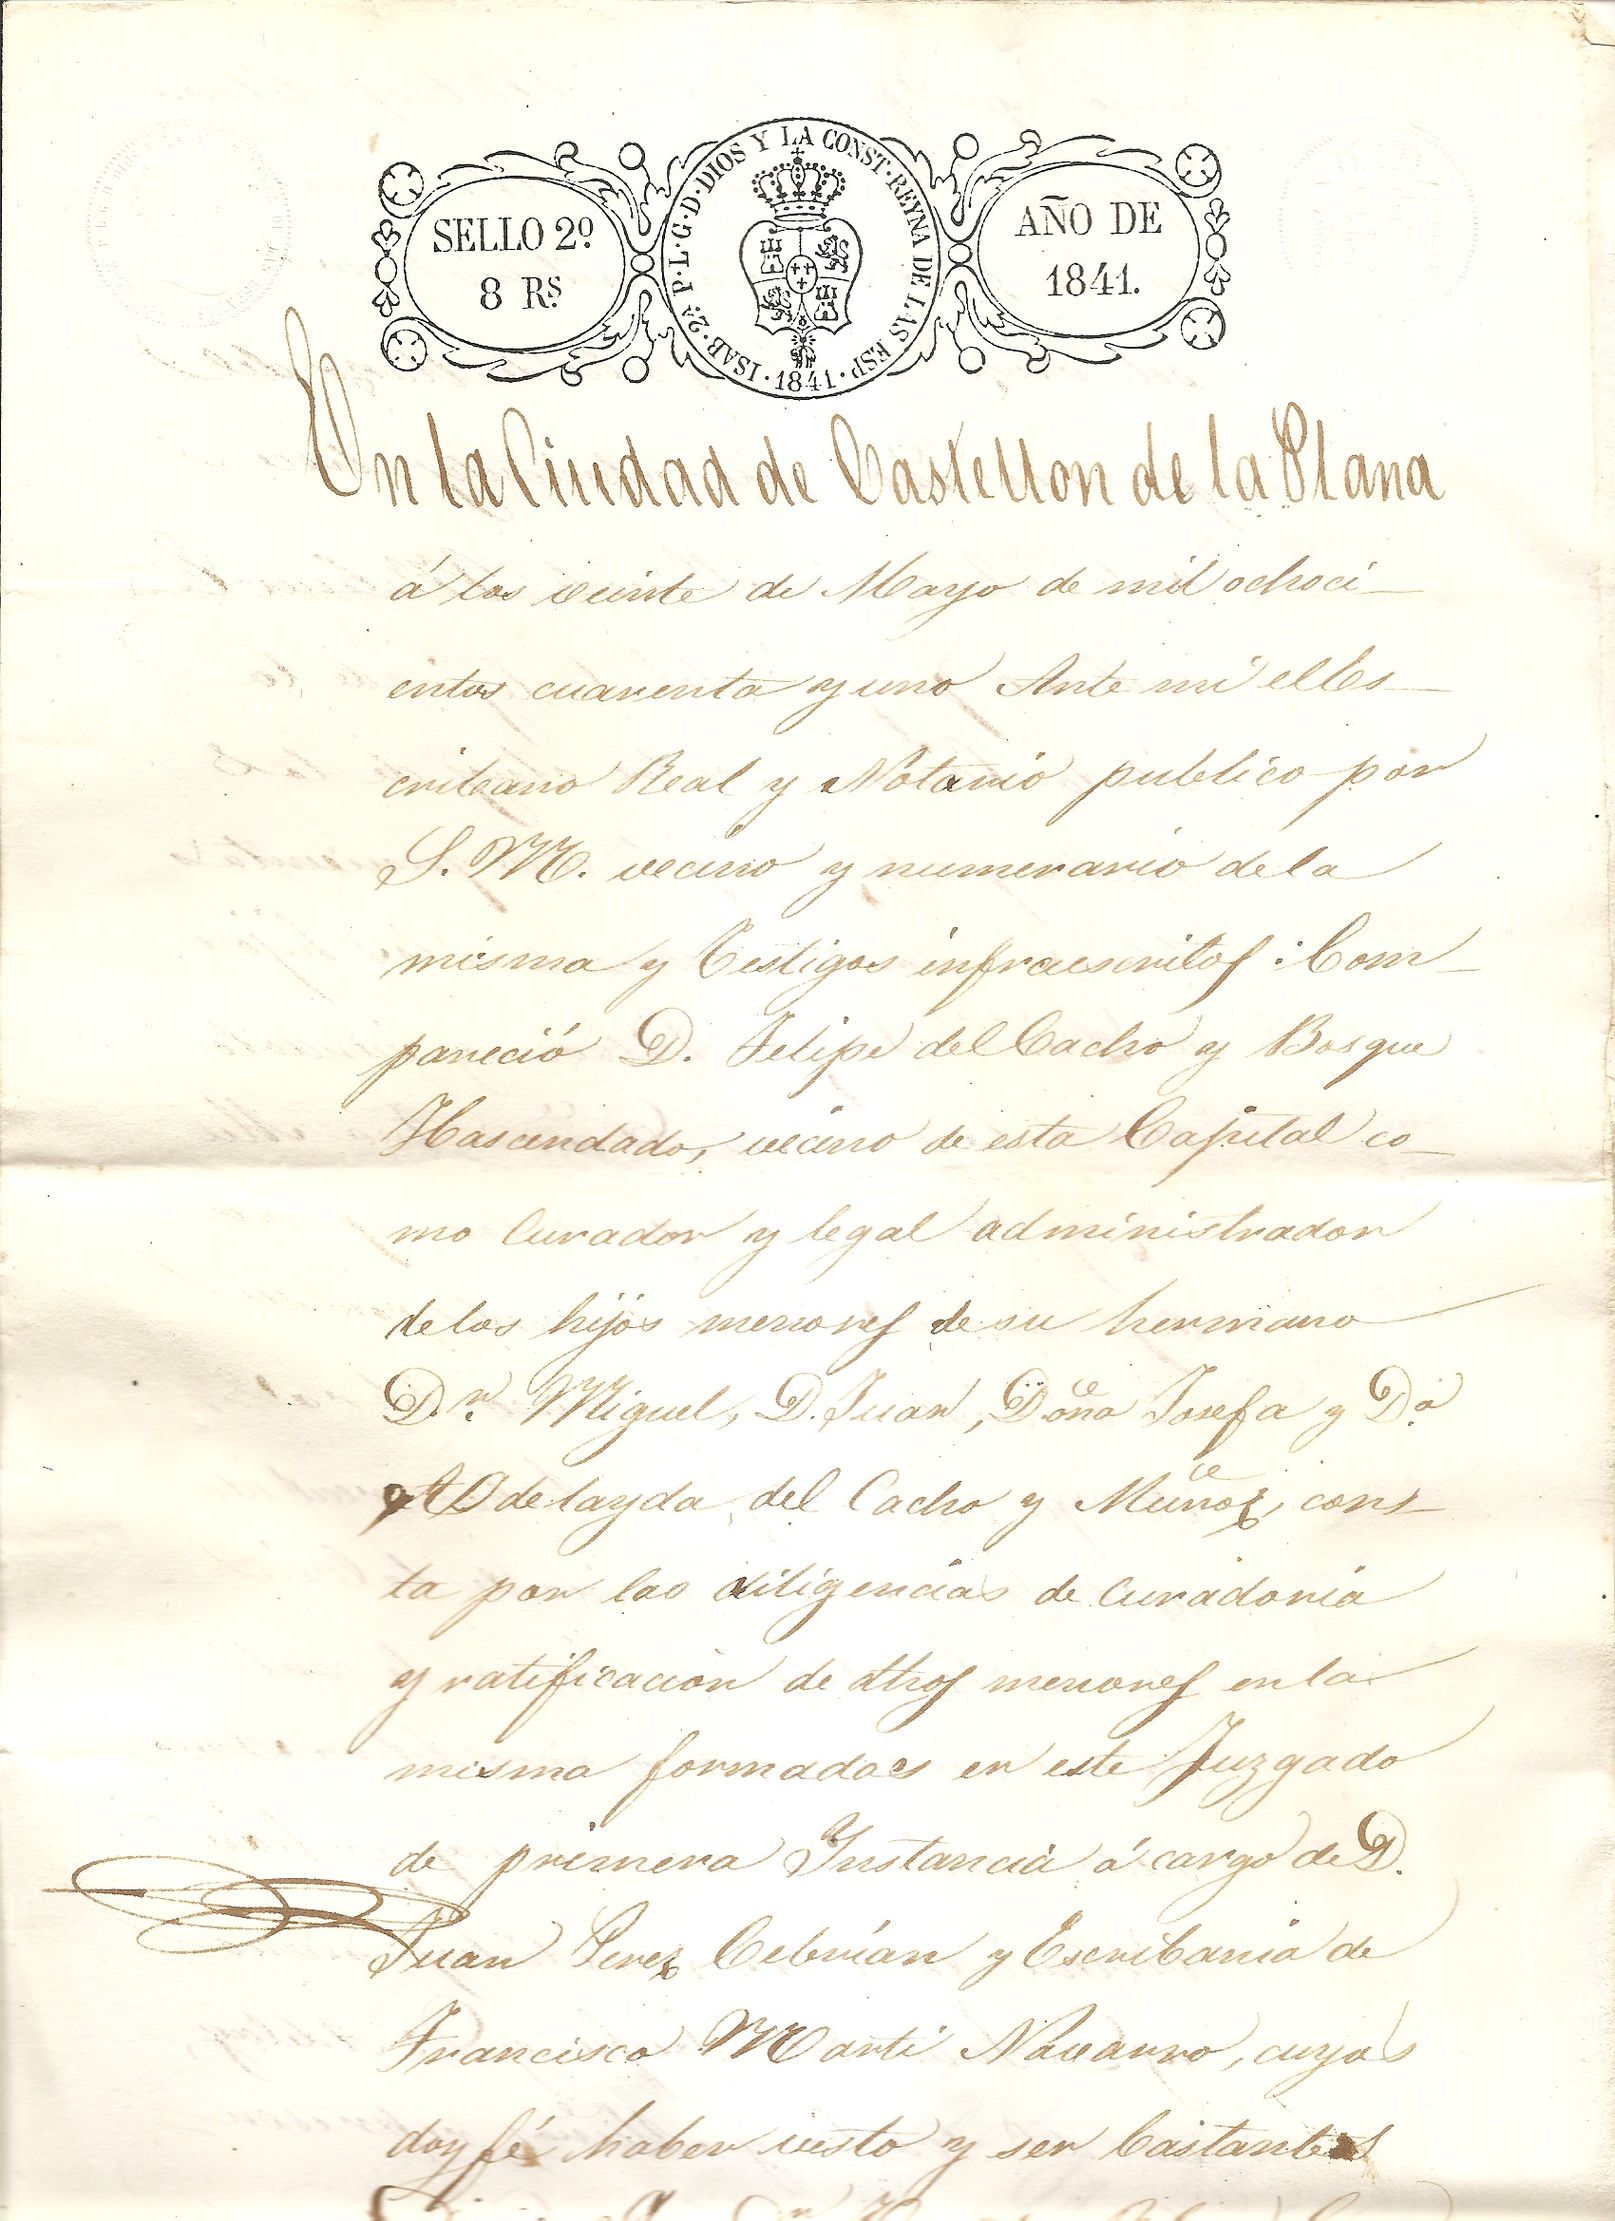 SELLO 2º
8 Rs.
ISAB. 2ª P. L. G. D. DIOS Y LA CONST. REYNA DE LAS ESP. 1841.
AÑO DE
1841.
En la Ciudad de Castellon de la Plana
á los veinte de Mayo de mil ochoci-
entos cuarenta y uno Ante mi el Es-
cribano Real y Notario publico por
S. M. vecino y numerario de la
misma y Testigos infraescritos: Com-
pareció D. Felipe del Cacho y Bosque
Hascendado, vecino de esta Capital co-
mo Curador y legal administrador
de los hijos menores de su hermano
Dn. Miguel, D. Juan, Doña Josefa y Da
Adelayda del Cacho y Muñoz, cons-
ta por las diligencias de Curadoria
y ratificacion de dhos menores en la
misma formadas en este Juzgado
de primera Instancia á cargo de D.
Juan Perez Cebrían y Escribania de
Francisco Marti Navarro, cuyas
doy fé haber visto y ser bastantes